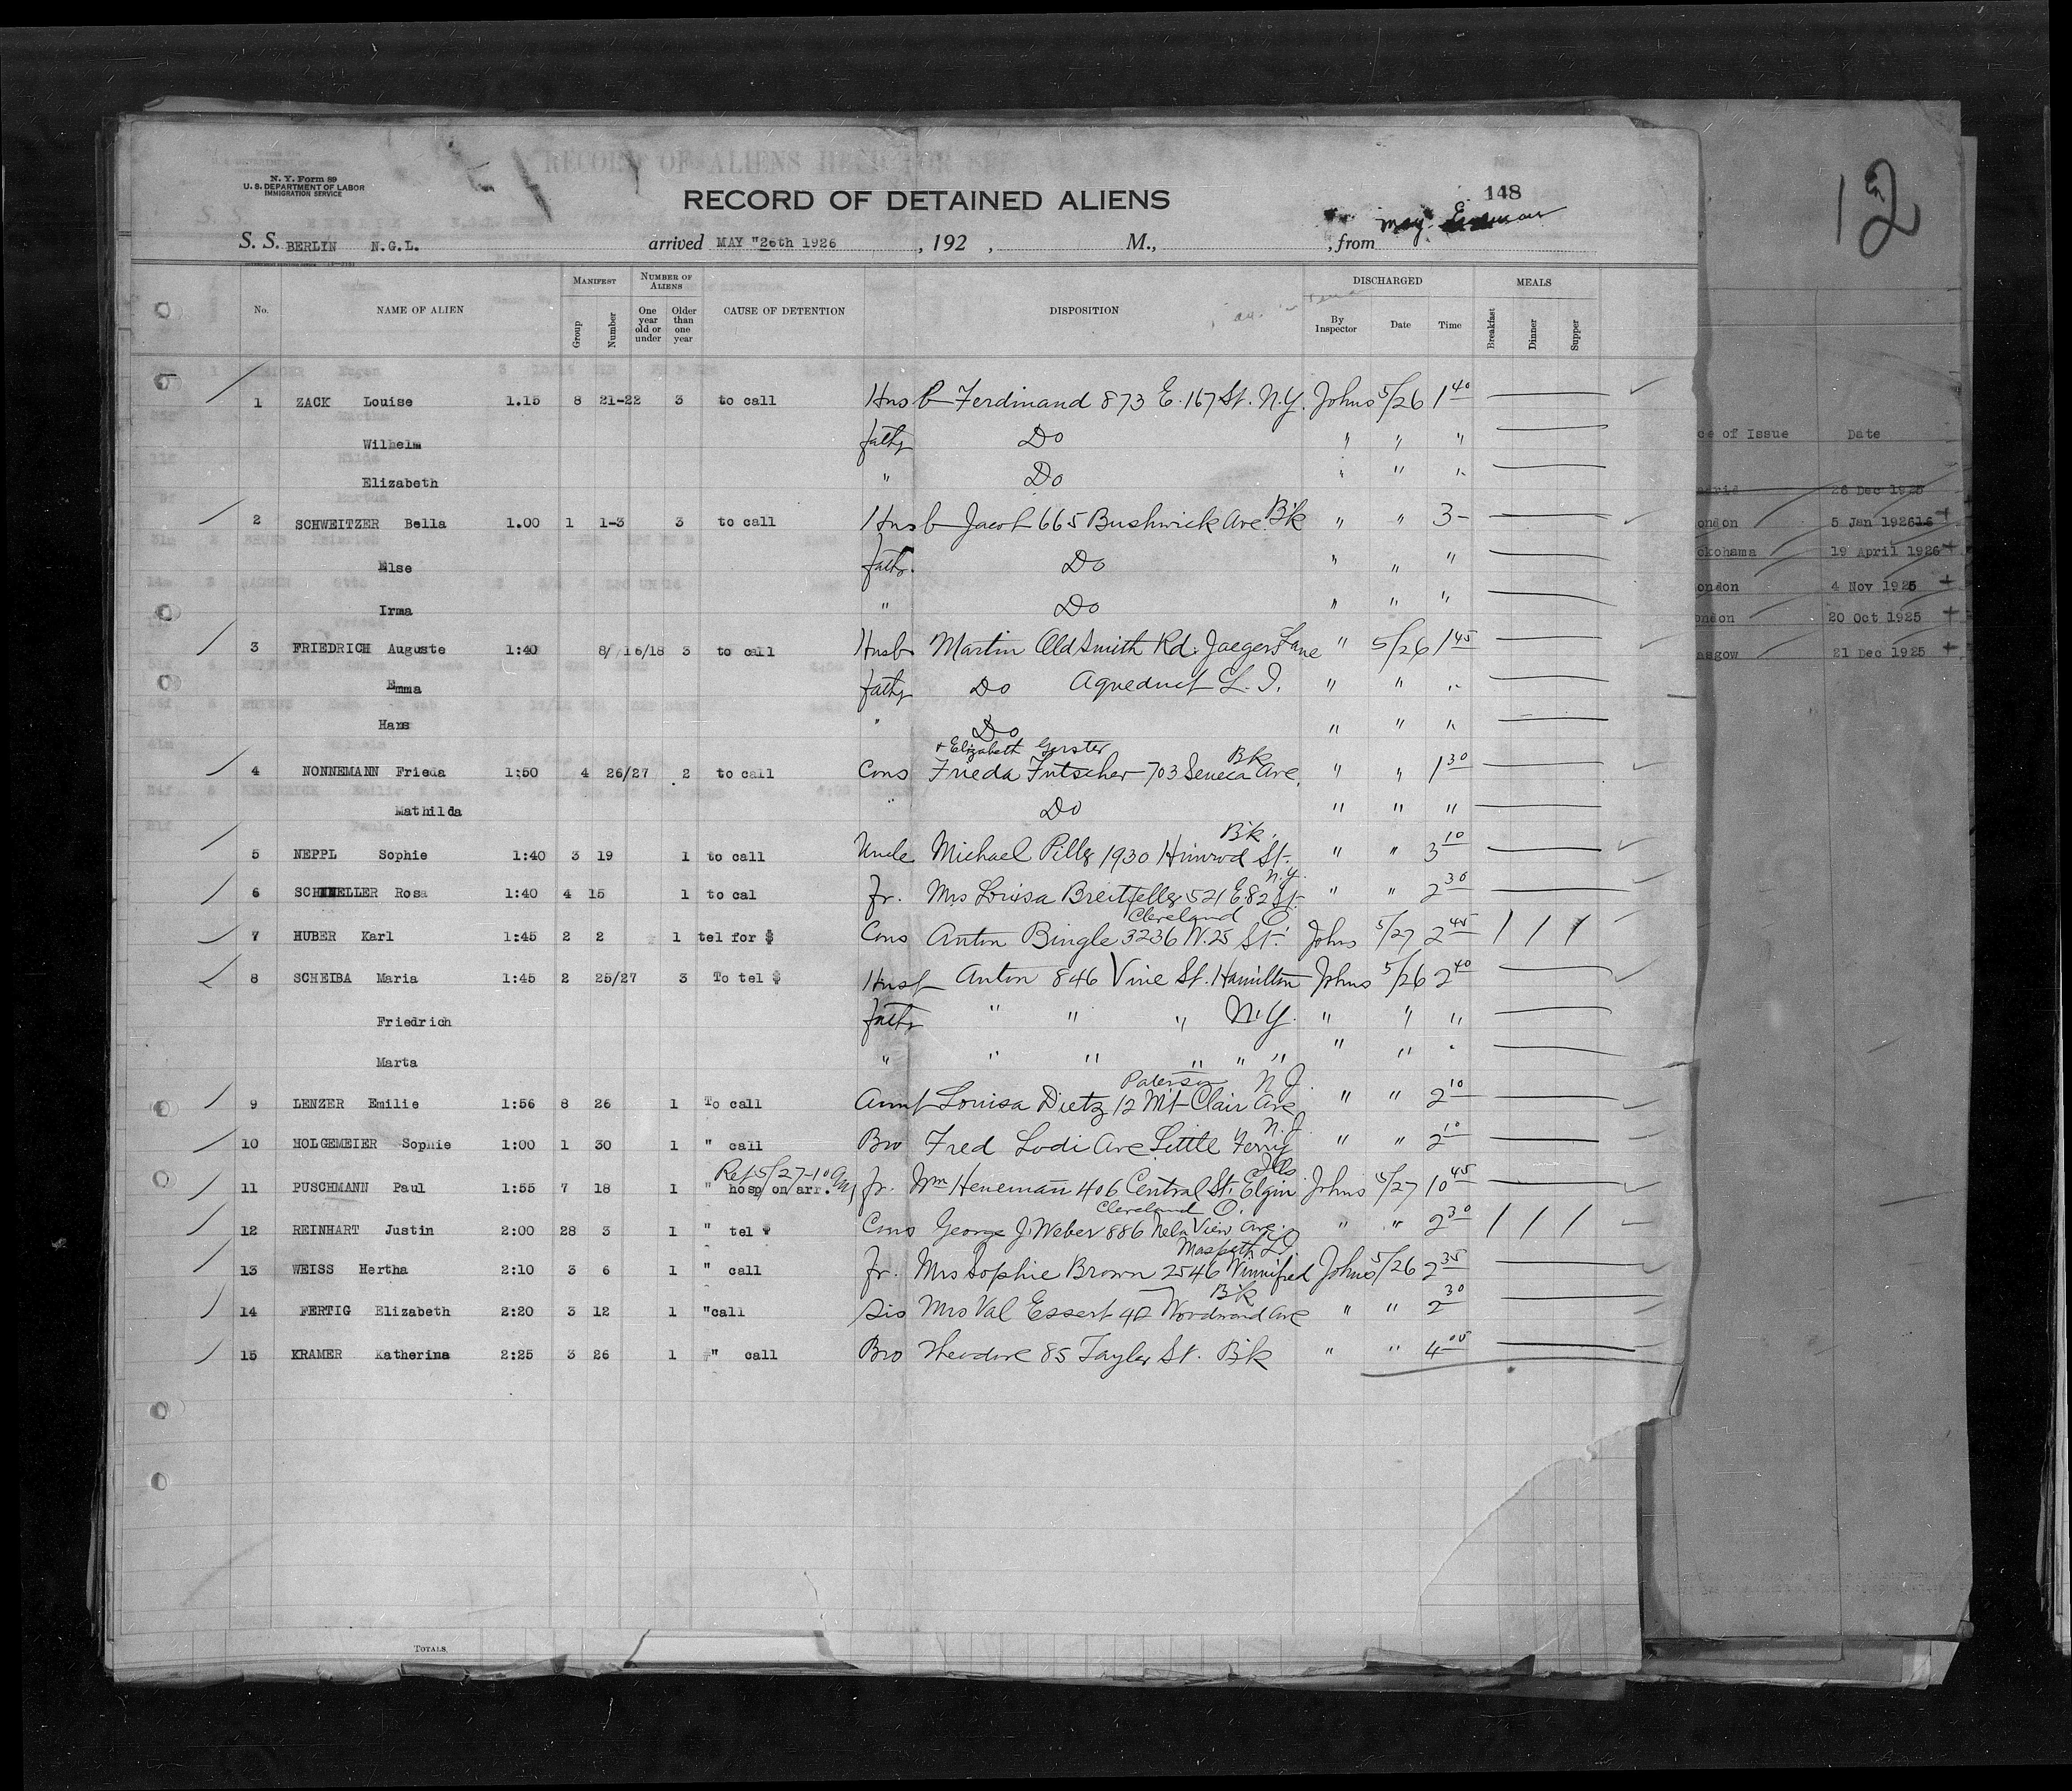 N. Y. Form 89
U. S. DEPARTMENT OF LABOR
IMMIGRATION SERVICE
148
RECORD OF DETAINED ALIENS
S. S. BERLIN N.G.L. arrived MAY "26th 1926, 192 , M., , from
No. NAME OF ALIEN MANIFEST Group Number NUMBER OF ALIENS One year old or under Older than one year CAUSE OF DETENTION DISPOSITION DISCHARGED By Inspector Date Time MEALS Breakfast Dinner Supper
1 ZACK Louise 1.15 8 21-22 3 to call Husb Ferdinand 873 E. 167 St. N.Y. Johns 5/26 1 40
Wilhelm fathr Do " " "
Elizabeth " Do " " "
2 SCHWEITZER Bella 1.00 1 1-3 3 to call Husb Jacob 665 Bushwick Ave. Bk " " 3-
Else fathr. Do " " "
Irma " Do " " "
3 FRIEDRICH Auguste 1:40 8/ 16/18 3 to call Husb Martin Old Smith Rd. Jaeger Lane " 5/26 1 45
Emma fathr Do Aqueduct L. I. " " "
Hans " Do " " "
+ Elizabeth Gerster Bk
4 NONNEMANN Frieda 1:50 4 26/27 2 to call Cons Frieda Futscher 703 Seneca Ave. " " 1 30
Mathilda " Do " " "
Bk.
5 NEPPL Sophie 1:40 3 19 1 to call Uncle Michael Piller 1930 Himrod St. " " 3 10
N.Y.
6 SCHNELLER Rosa 1:40 4 15 1 to cal Fr. Mrs Louisa Breitfeller 521 E 82 St. " " 2 30
Cleveland O
7 HUBER Karl 1:45 2 2 1 tel for $ Cons Anton Bingle 3236 W. 25 St. Johns 5/27 2 45 / / /
8 SCHEIBA Maria 1:45 2 25/27 3 To tel $ Husb Anton 846 Vine St. Hamilton Johns 5/26 2 40
Friedrich fathr " " " N.Y. " " "
Marta " " " " " " " " "
Paterson N J.
9 LENZER Emilie 1:56 8 26 1 To call Aunt Louisa Dietz 12 Mt Clair Ave " " 2 10
N. J.
10 HOLGEMEIER Sophie 1:00 1 30 1 " call Bro Fred Lodi Ave Little Ferry " " 2 10
Ref 5/27-10 AM Ills
11 PUSCHMANN Paul 1:55 7 18 1 " hosp on arr. Fr. Wm Heneman 406 Central St. Elgin Johns 5/27 10 45
Cleveland O.
12 REINHART Justin 2:00 28 3 1 " tel $ Cons George J. Weber 886 Nela View Ave. " " 2 30 / / /
Maspeth L I.
13 WEISS Hertha 2:10 3 6 1 " call Fr. Mrs Sophie Brown 2546 Winnifred Johns 5/26 2 35
Bk
14 FERTIG Elizabeth 2:20 3 12 1 "call Sis Mrs Val Essert 42 Woodward Ave " " 2 30
15 KRAMER Katherina 2:25 3 26 1 " call Bro Theodore 85 Taylor St. Bk " " 4 00
TOTALS
12
ce of Issue Date
adrid 26 Dec 1925
ondon 5 Jan 1926
okohama 19 April 1926
ondon 4 Nov 1925
ondon 20 Oct 1925
asgow 21 Dec 1925